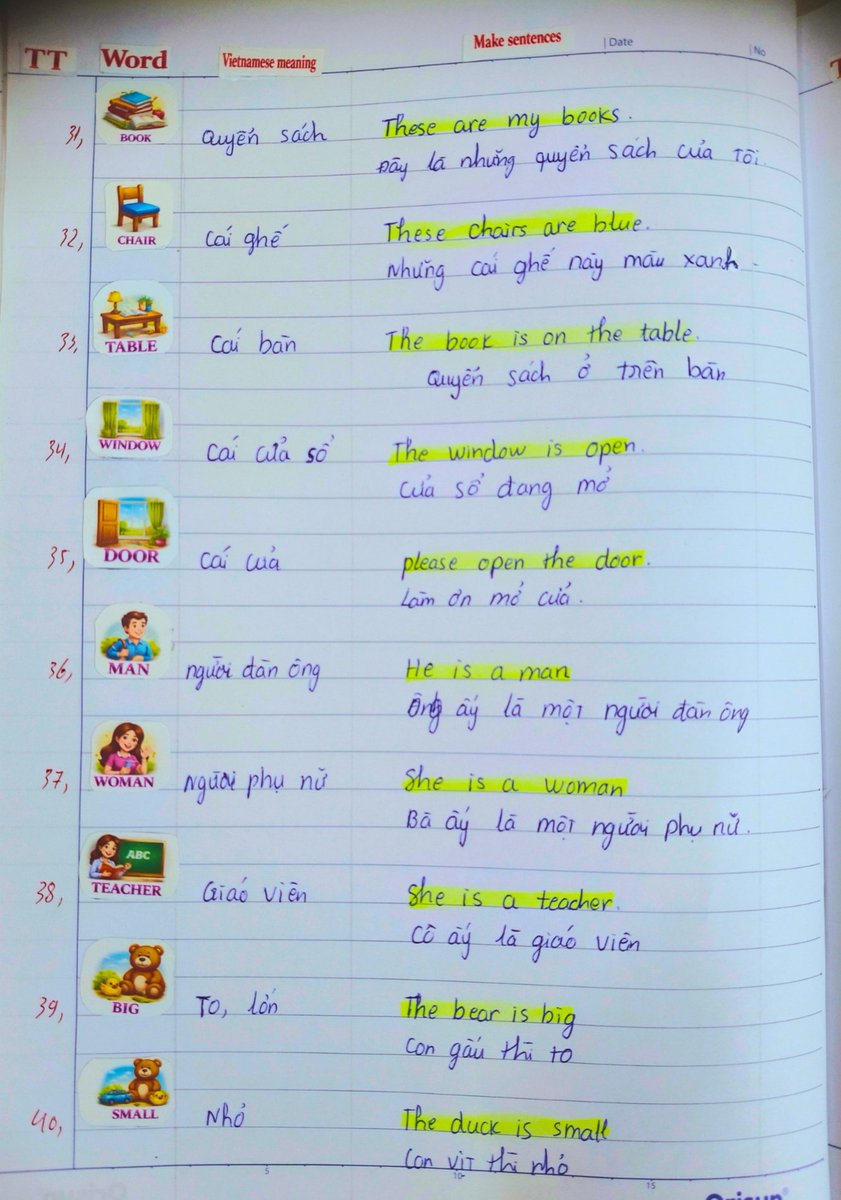 TT Word Vietnamese meaning Make sentences Date No
31, BOOK Quyển sách These are my books.
Đây là những quyển sách của tôi.
32, CHAIR Cái ghế These chairs are blue.
Những cái ghế này màu xanh.
33, TABLE Cái bàn The book is on the table.
Quyển sách ở trên bàn
34, WINDOW Cái cửa sổ The window is open.
Cửa sổ đang mở
35, DOOR Cái cửa please open the door.
Làm ơn mở cửa.
36, MAN người đàn ông He is a man
Ông ấy là một người đàn ông
37, WOMAN Người phụ nữ She is a woman
Bà ấy là một người phụ nữ.
38, ABC TEACHER Giáo viên She is a teacher.
Cô ấy là giáo viên
39, BIG To, lớn The bear is big
Con gấu thì to
40, SMALL Nhỏ The duck is small
Con vịt thì nhỏ
5 10 15